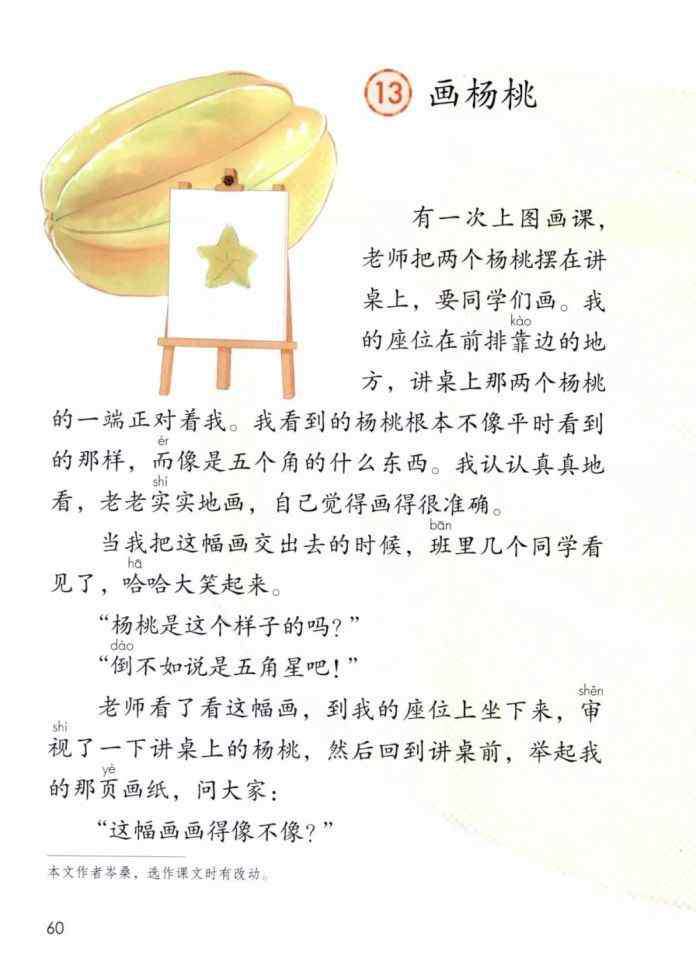 13 画杨桃
有一次上图画课，
老师把两个杨桃摆在讲
桌上，要同学们画。我
kào
的座位在前排靠边的地
方，讲桌上那两个杨桃
的一端正对着我。我看到的杨桃根本不像平时看到
ér
的那样，而像是五个角的什么东西。我认认真真地
shí
看，老老实实地画，自己觉得画得很准确。
bān
当我把这幅画交出去的时候，班里几个同学看
hā
见了，哈哈大笑起来。
“杨桃是这个样子的吗？”
dào
“倒不如说是五角星吧！”
shěn
老师看了看这幅画，到我的座位上坐下来，审
shì
视了一下讲桌上的杨桃，然后回到讲桌前，举起我
yè
的那页画纸，问大家：
“这幅画画得像不像？”
本文作者岑桑，选作课文时有改动。
60